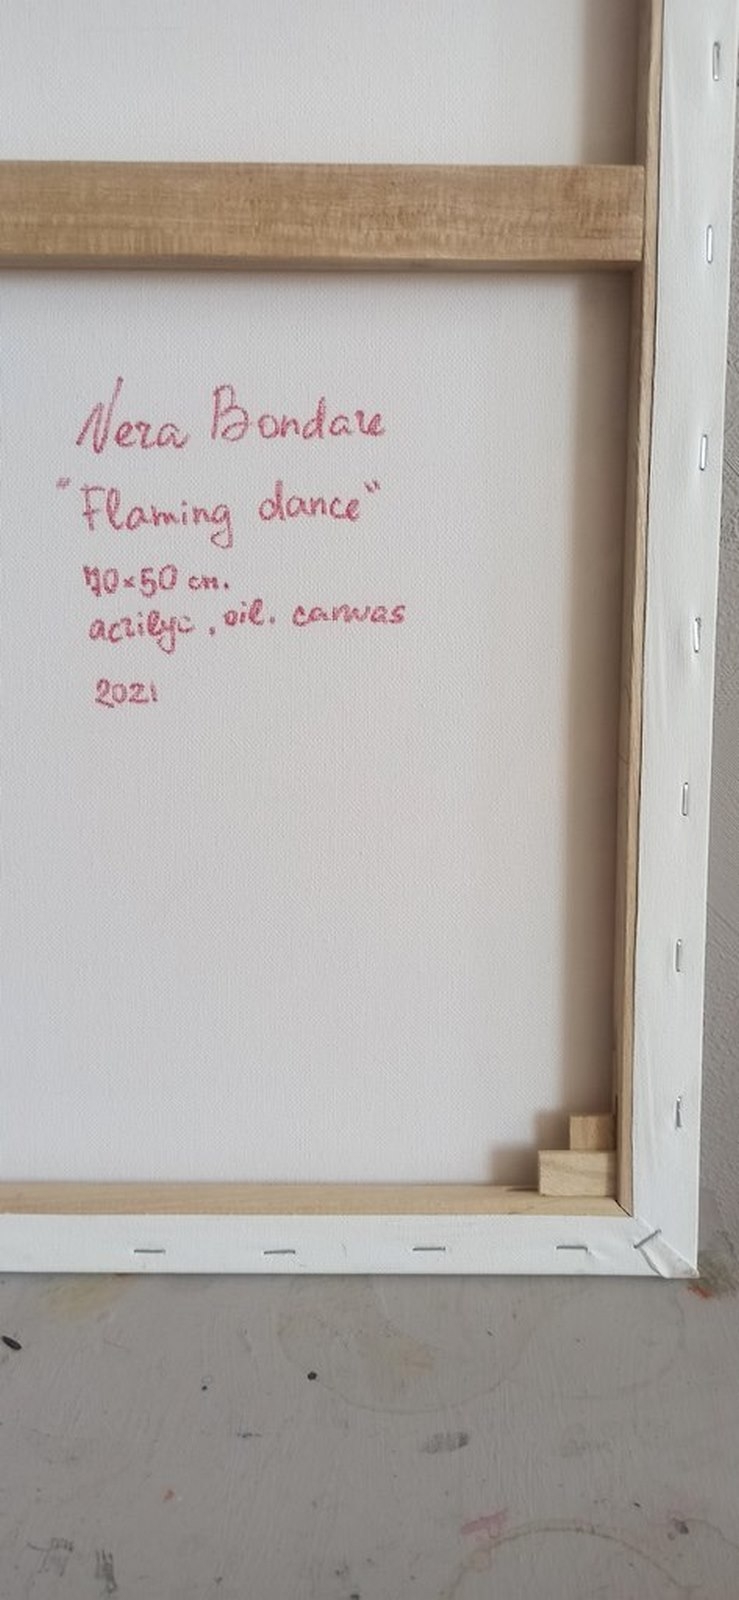 Vera Bondare
"Flaming dance"
70×50 cm.
acrilyc, oil. canvas
2021